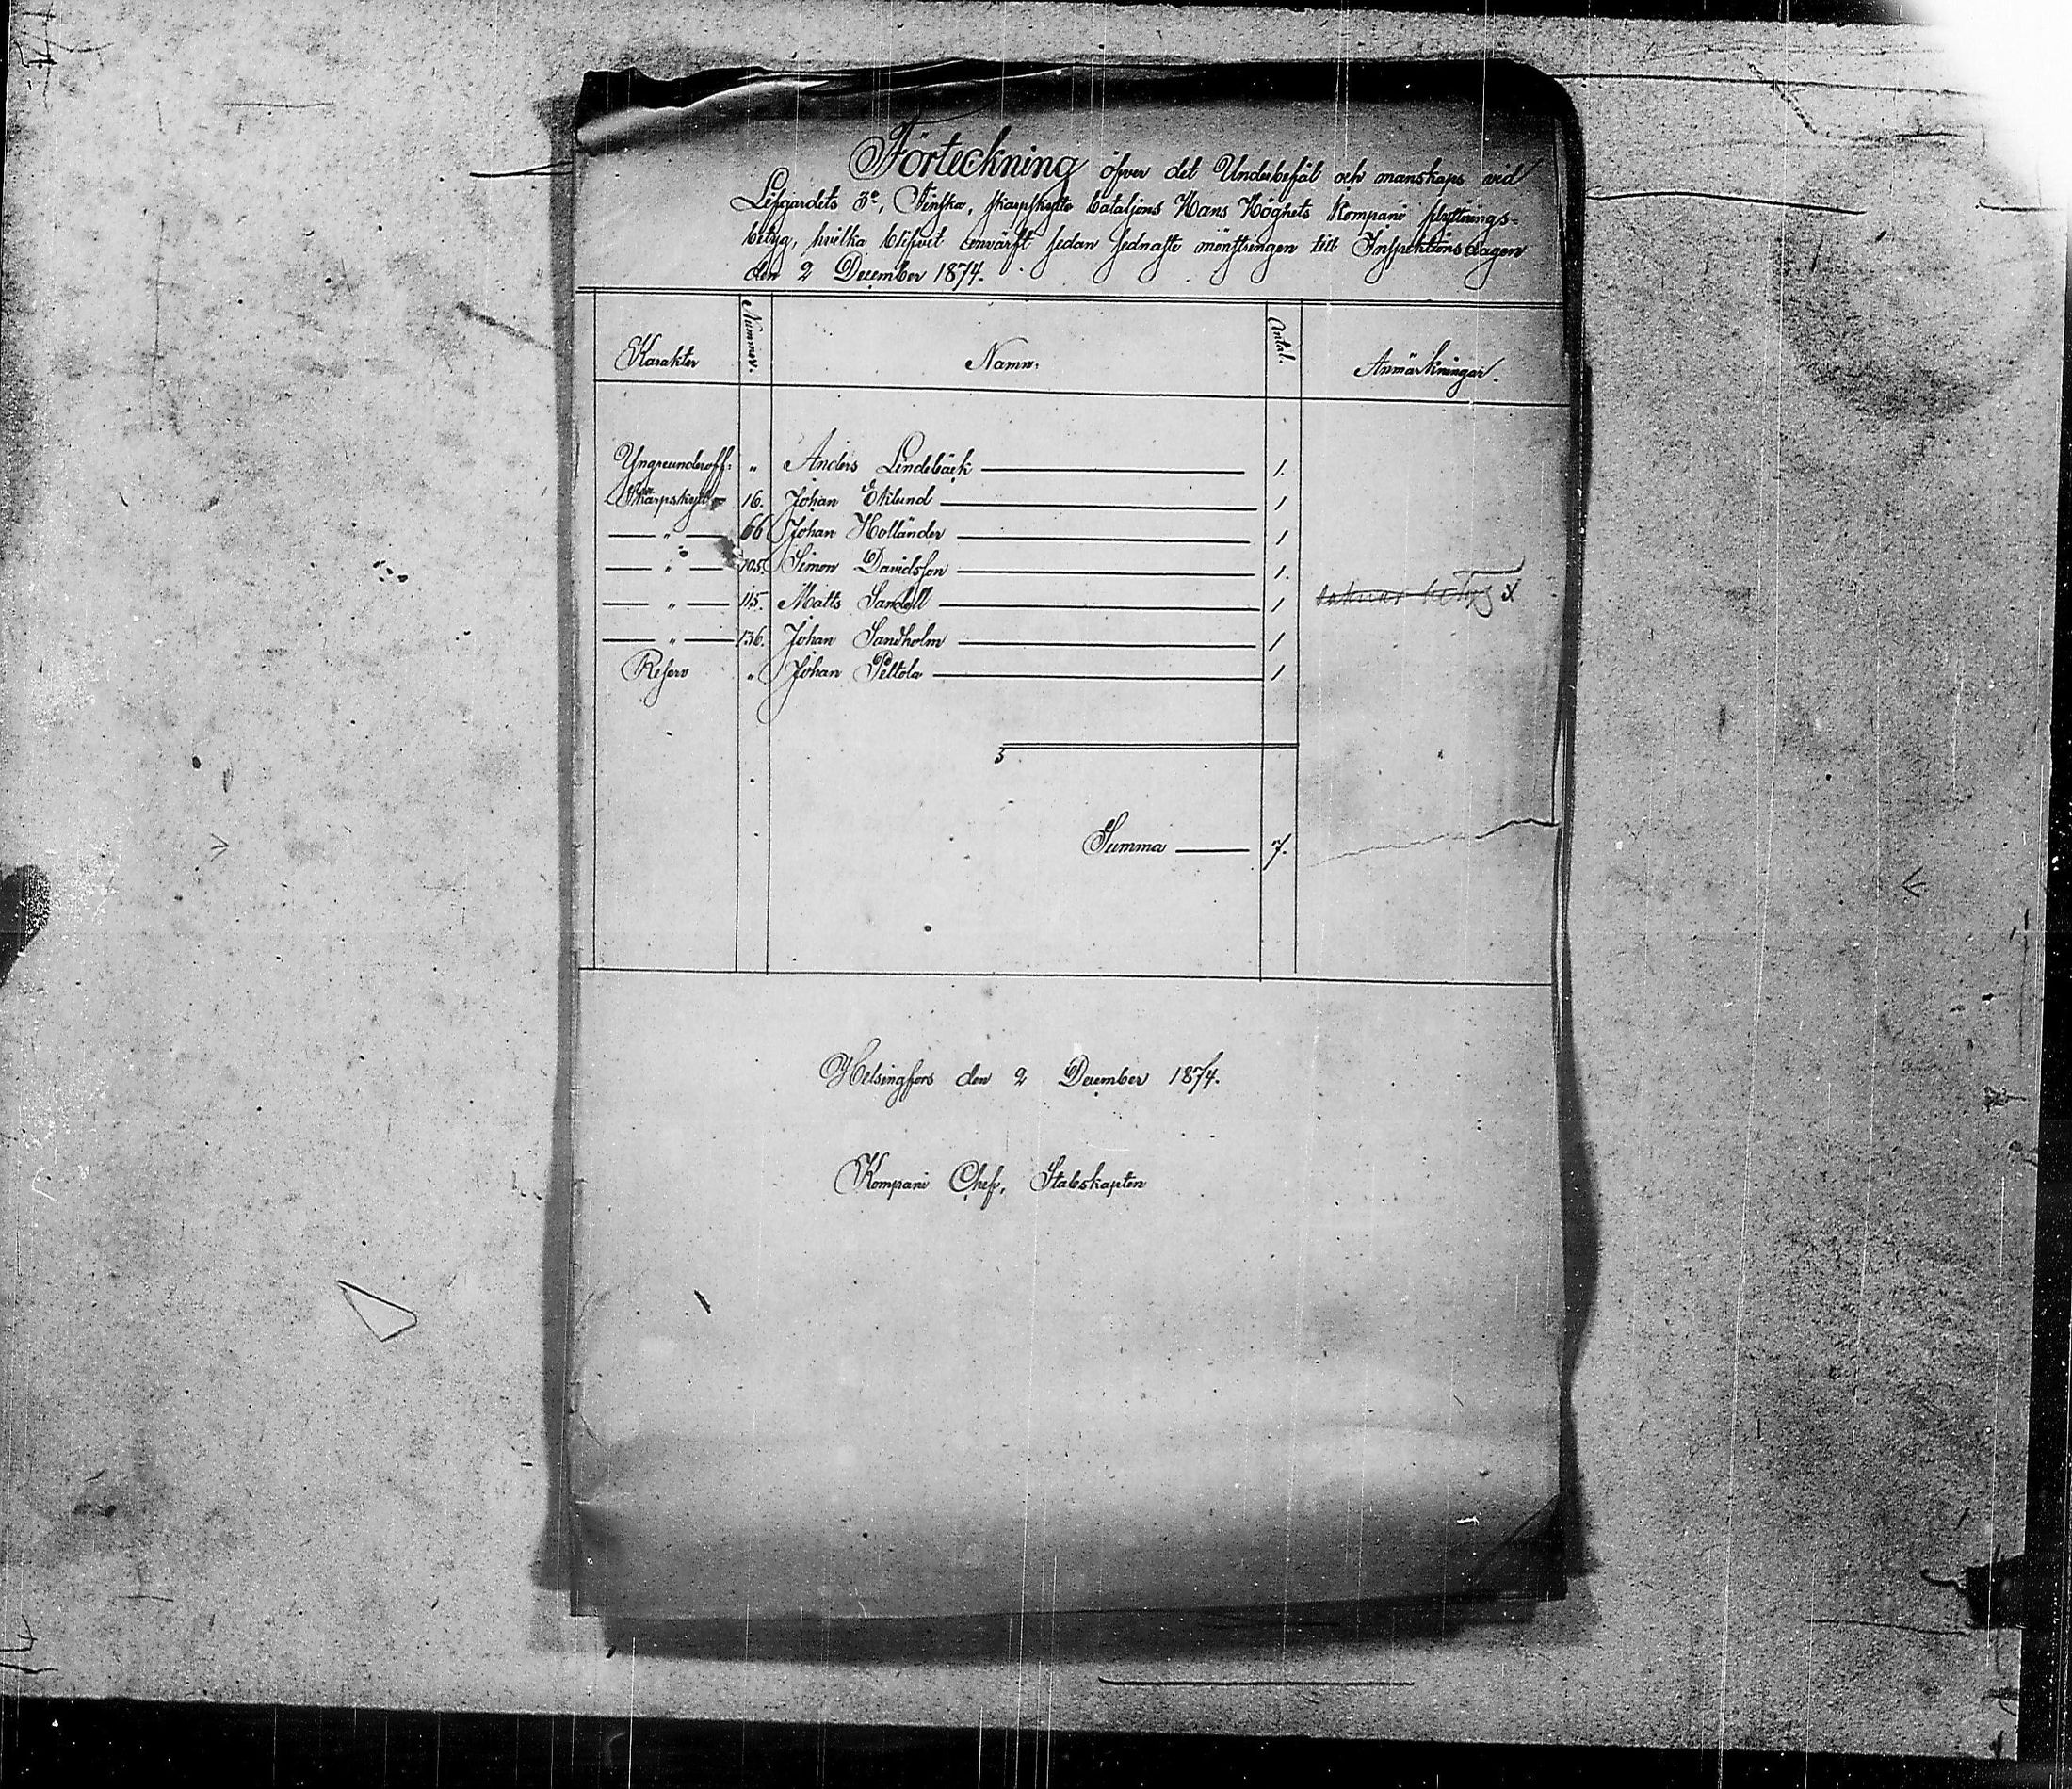 Förteckning öfver det Underbefäl och manskaps vid
Lifgardets 3e, Finska, skarpskytte bataljons Hans Höghets Kompani flyttnings-
betyg, hvilka blifvit envärft sedan sednaste mönstringen till Inspektionsdagen
den 2 December 1874.
Karakter Nummer. Namn. Antal. Anmärkningar.
Yngreunderoff: " Anders Lindebäck 1.
Skarpskytt 16. Johan Eklund 1
— " — 66 Johan Holländer 1
— " — 105. Simon Davidsson 1.
— " — 115. Matts Sandell 1 saknar betyg
— " — 136. Johan Sandholm 1
Reserv " Johan Peltola 1
Summa — 7.
Helsingfors den 2 December 1874.
Kompani Chef, Stabskapten